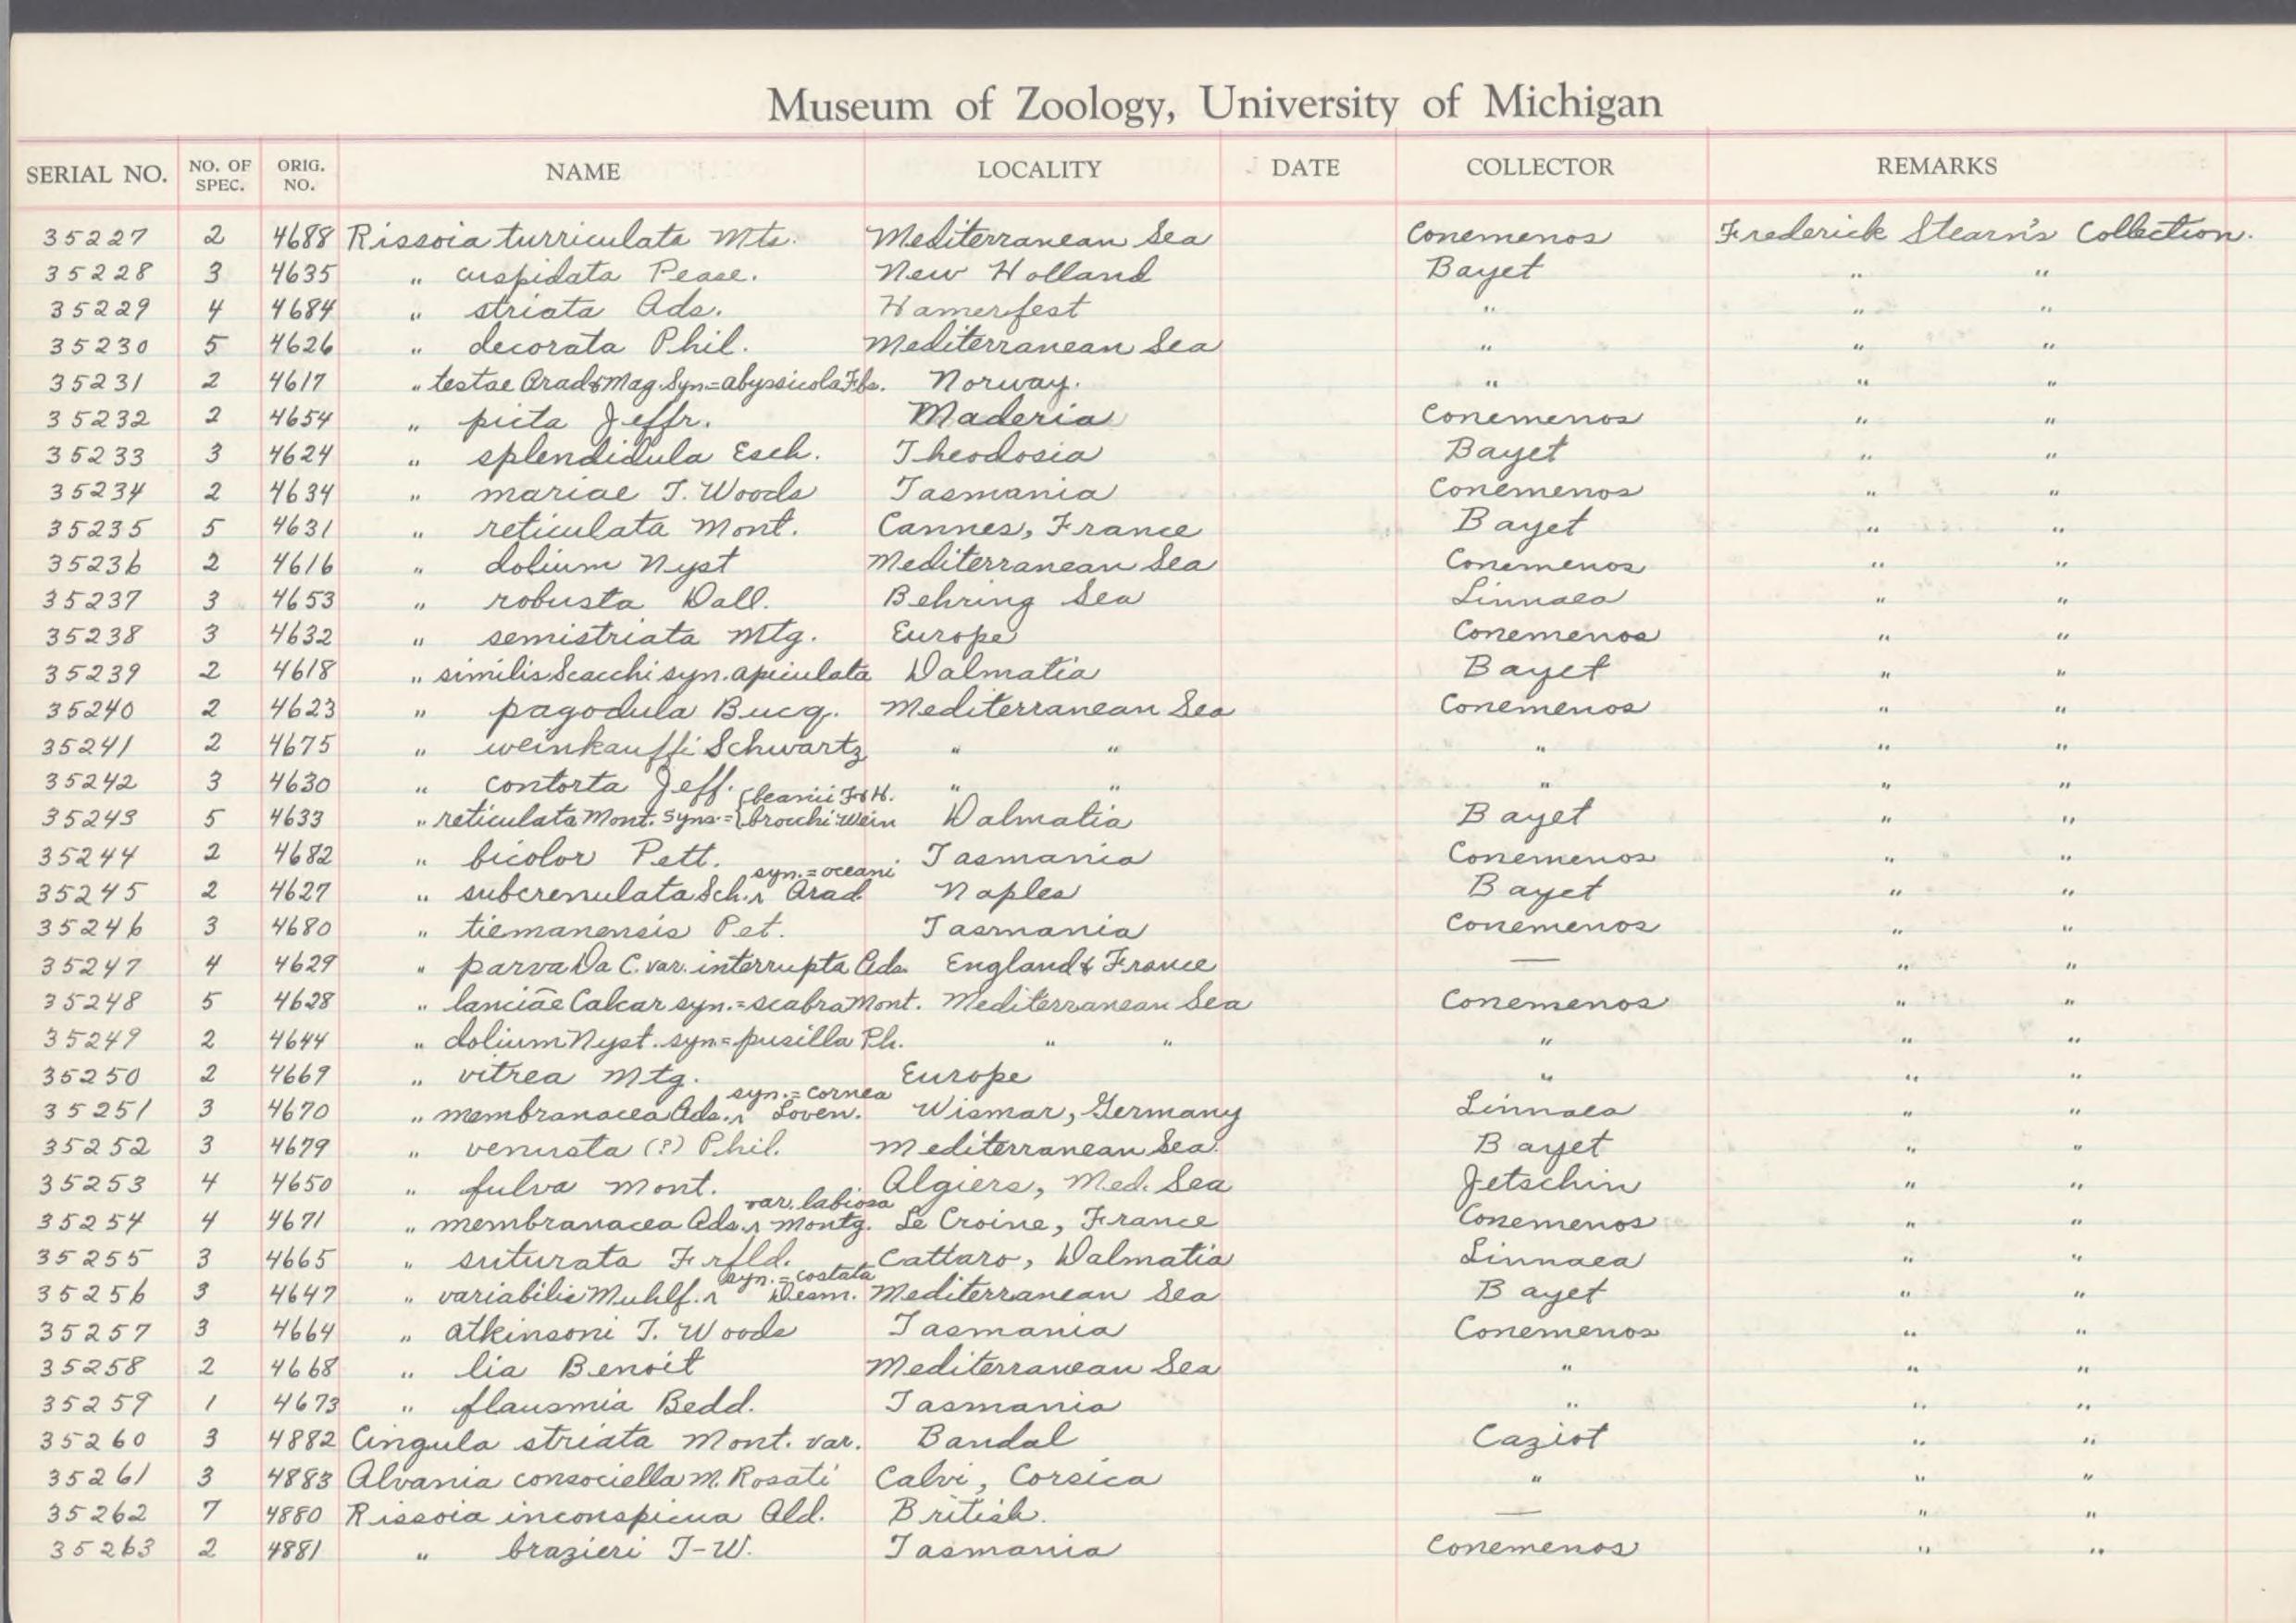 Museum of Zoology, University of Michigan
SERIAL NO. NO. OF SPEC. ORIG. NO. NAME LOCALITY DATE COLLECTOR REMARKS
35227 2 4688 Rissoia turriculata Mts. Mediterranean Sea Conemenos Frederick Stearn's Collection.
35228 3 4635 " cuspidata Pease. New Holland Bayet " "
35229 4 4684 " striata Ads. Hamerfest " " "
35230 5 4626 " decorata Phil. Mediterranean Sea " " "
35231 2 4617 " testae Arad & Mag. Syn = abyssicola Fbs. Norway. " " "
35232 2 4654 " picta Jeffr. Maderia Conemenos " "
35233 3 4624 " splendidula Esch. Theodosia Bayet " "
35234 2 4634 " mariae T. Woods Tasmania Conemenos " "
35235 5 4631 " reticulata Mont. Cannes, France Bayet " "
35236 2 4616 " dolium Nyst Mediterranean Sea Conemenos " "
35237 3 4653 " robusta Dall. Behring Sea Linnaea " "
35238 3 4632 " semistriata Mtg. Europe Conemenos " "
35239 2 4618 " similis Scacchi syn. apiculata Dalmatia Bayet " "
35240 2 4623 " pagodula Bucq. Mediterranean Sea Conemenos " "
35241 2 4675 " weinkauffi Schwartz " " " " "
35242 3 4630 " contorta Jeff. " " " " "
35243 5 4633 " reticulata Mont. Syns. = { beanii F & H. brocchi Wein Dalmatia Bayet " "
35244 2 4682 " bicolor Pett. Tasmania Conemenos " "
35245 2 4627 " subcrenulata Sch. syn. = oceani Arad. Naples Bayet " "
35246 3 4680 " tiemanensis Pet. Tasmania Conemenos " "
35247 4 4629 " parva Da C. var. interrupta Ads. England & France — " "
35248 5 4628 " lanciae Calcar syn. = scabra Mont. Mediterranean Sea Conemenos " "
35249 2 4644 " dolium Nyst. syn = pusilla Ph. " " " " "
35250 2 4669 " vitrea Mtg. Europe " " "
35251 3 4670 " membranacea Ads. syn. = cornea Loven. Wismar, Germany Linnaea " "
35252 3 4679 " venusta (?) Phil. Mediterranean Sea. Bayet " "
35253 4 4650 " fulva Mont. Algiers, Med. Sea Jetschin " "
35254 4 4671 " membranacea Ads. var. labiosa Montg. Le Croine, France Conemenos " "
35255 3 4665 " suturata Frfld. Cattaro, Dalmatia Linnaea " "
35256 3 4647 " variabilis Muhlf. syn. = costata Desm. Mediterranean Sea Bayet " "
35257 3 4664 " atkinsoni T. Woods Tasmania Conemenos " "
35258 2 4668 " lia Benoit Mediterranean Sea " " "
35259 1 4673 " flausmia Bedd. Tasmania " " "
35260 3 4882 Cingula striata Mont. var. Bandal Caziot " "
35261 3 4883 Alvania consociella M. Rosati Calvi, Corsica " " "
35262 7 4880 Rissoia inconspicua Ald. British. — " "
35263 2 4881 " brazieri T-W. Tasmania Conemenos " "